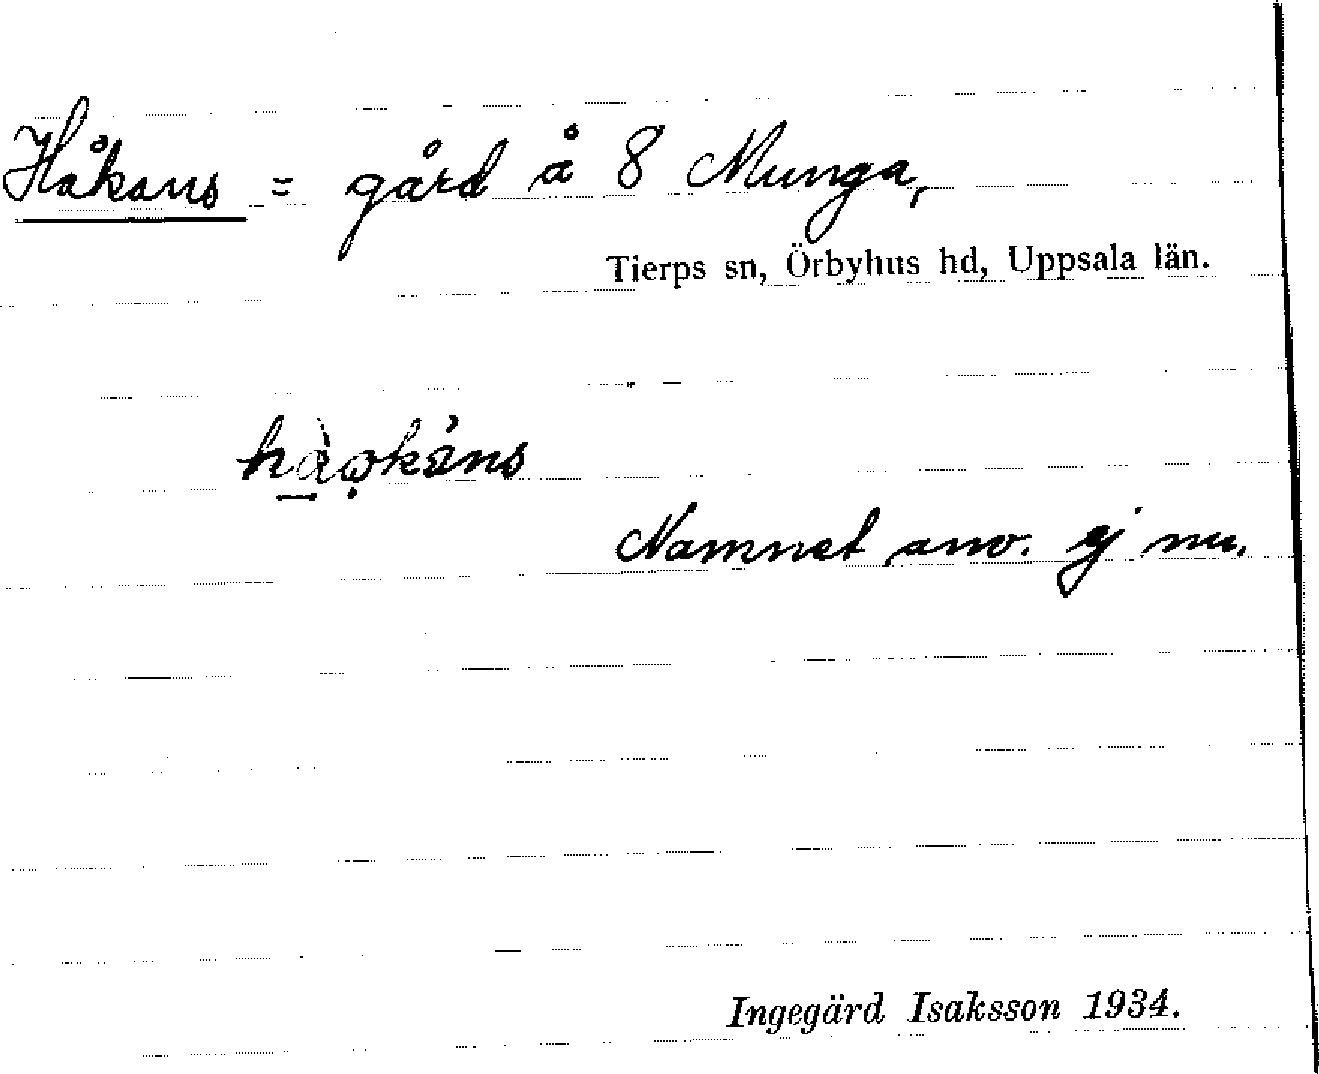 Håkans = gård å 8 Munga,
Tierps sn, Örbyhus hd, Uppsala län.
Namnet anv. ej nu.
Ingegärd Isaksson 1934.